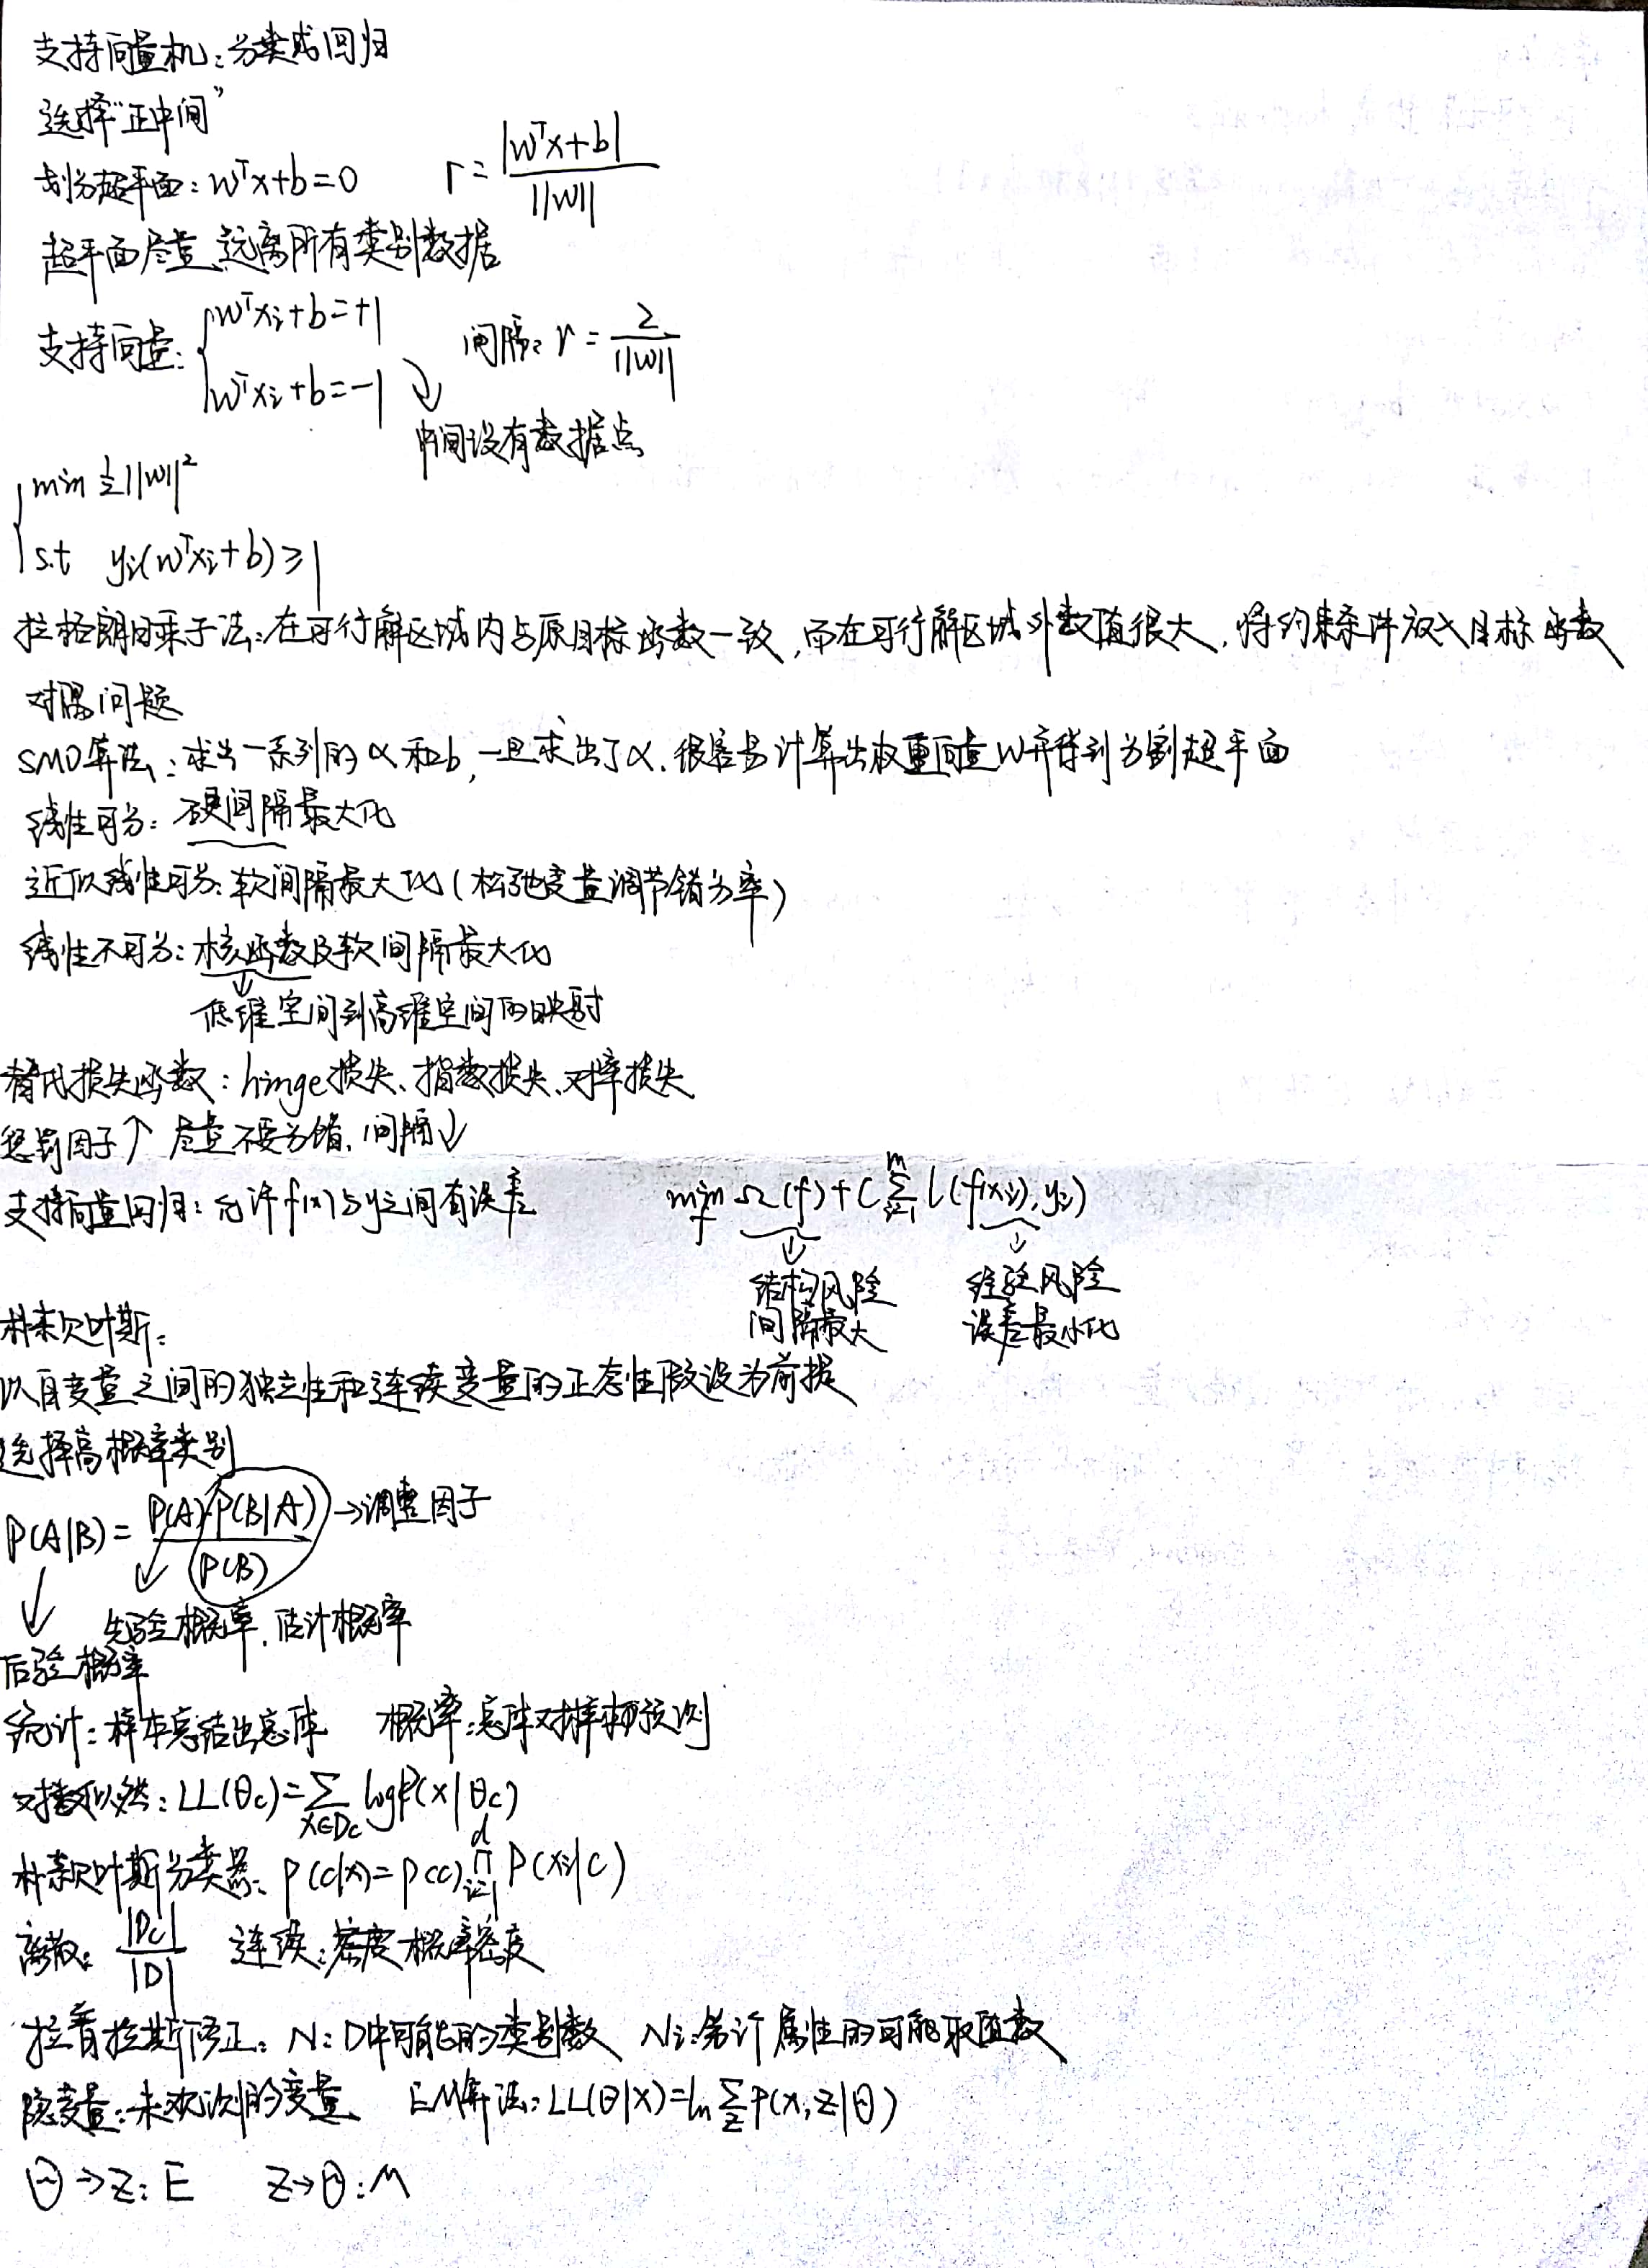 支持向量机：分类或回归
选择“正中间”
划分超平面：wᵀx+b=0  r=|wᵀx+b|/||w||
超平面尽量远离所有类别数据
支持向量：{wᵀxi+b=+1  间隔：r=2/||w||
wᵀxi+b=-1 ↘
中间没有数据点
{min ½||w||²
s.t yi(wᵀxi+b)≥1
拉格朗日乘子法：在可行解区域内与原目标函数一致，而在可行解区域外数值很大，将约束条件放入目标函数
对偶问题
SMO算法：求出一系列的α和b，一旦求出了α，很容易计算出权重向量w并得到分割超平面
线性可分：硬间隔最大化
近似线性可分：软间隔最大化（松弛变量调节错分率）
线性不可分：核函数及软间隔最大化
↓
低维空间到高维空间的映射
替代损失函数：hinge损失、指数损失、对率损失
惩罚因子↑ 尽量不要分错，间隔↓
支持向量回归：允许f(x)与y之间有误差  min_f Ω(f)+C∑_{i=1}^m l(f(xi),yi)
↓ ↓
结构风险  经验风险
间隔最大  误差最小化
朴素贝叶斯：
以自变量之间的独立性和连续变量的正态性假设为前提
选择高概率类别
P(A|B)=P(A)·P(B|A)/P(B) →调整因子
↓ ↙
先验概率，估计概率
后验概率
统计：样本总结出总体  概率：总体对样本预测
对数似然：LL(θc)=∑_{x∈Dc} logP(x|θc)
朴素贝叶斯分类器：P(c|x)=P(c)∏_{i=1}^d P(xi|c)
离散：|Dc|/|D|  连续：密度概率密度
拉普拉斯修正：N：D中可能的类别数  Ni：第i个属性的可能取值数
隐变量：未观测的变量  EM算法：LL(θ|X)=ln∑_Z P(X,Z|θ)
Θ→Z：E  Z→Θ：M